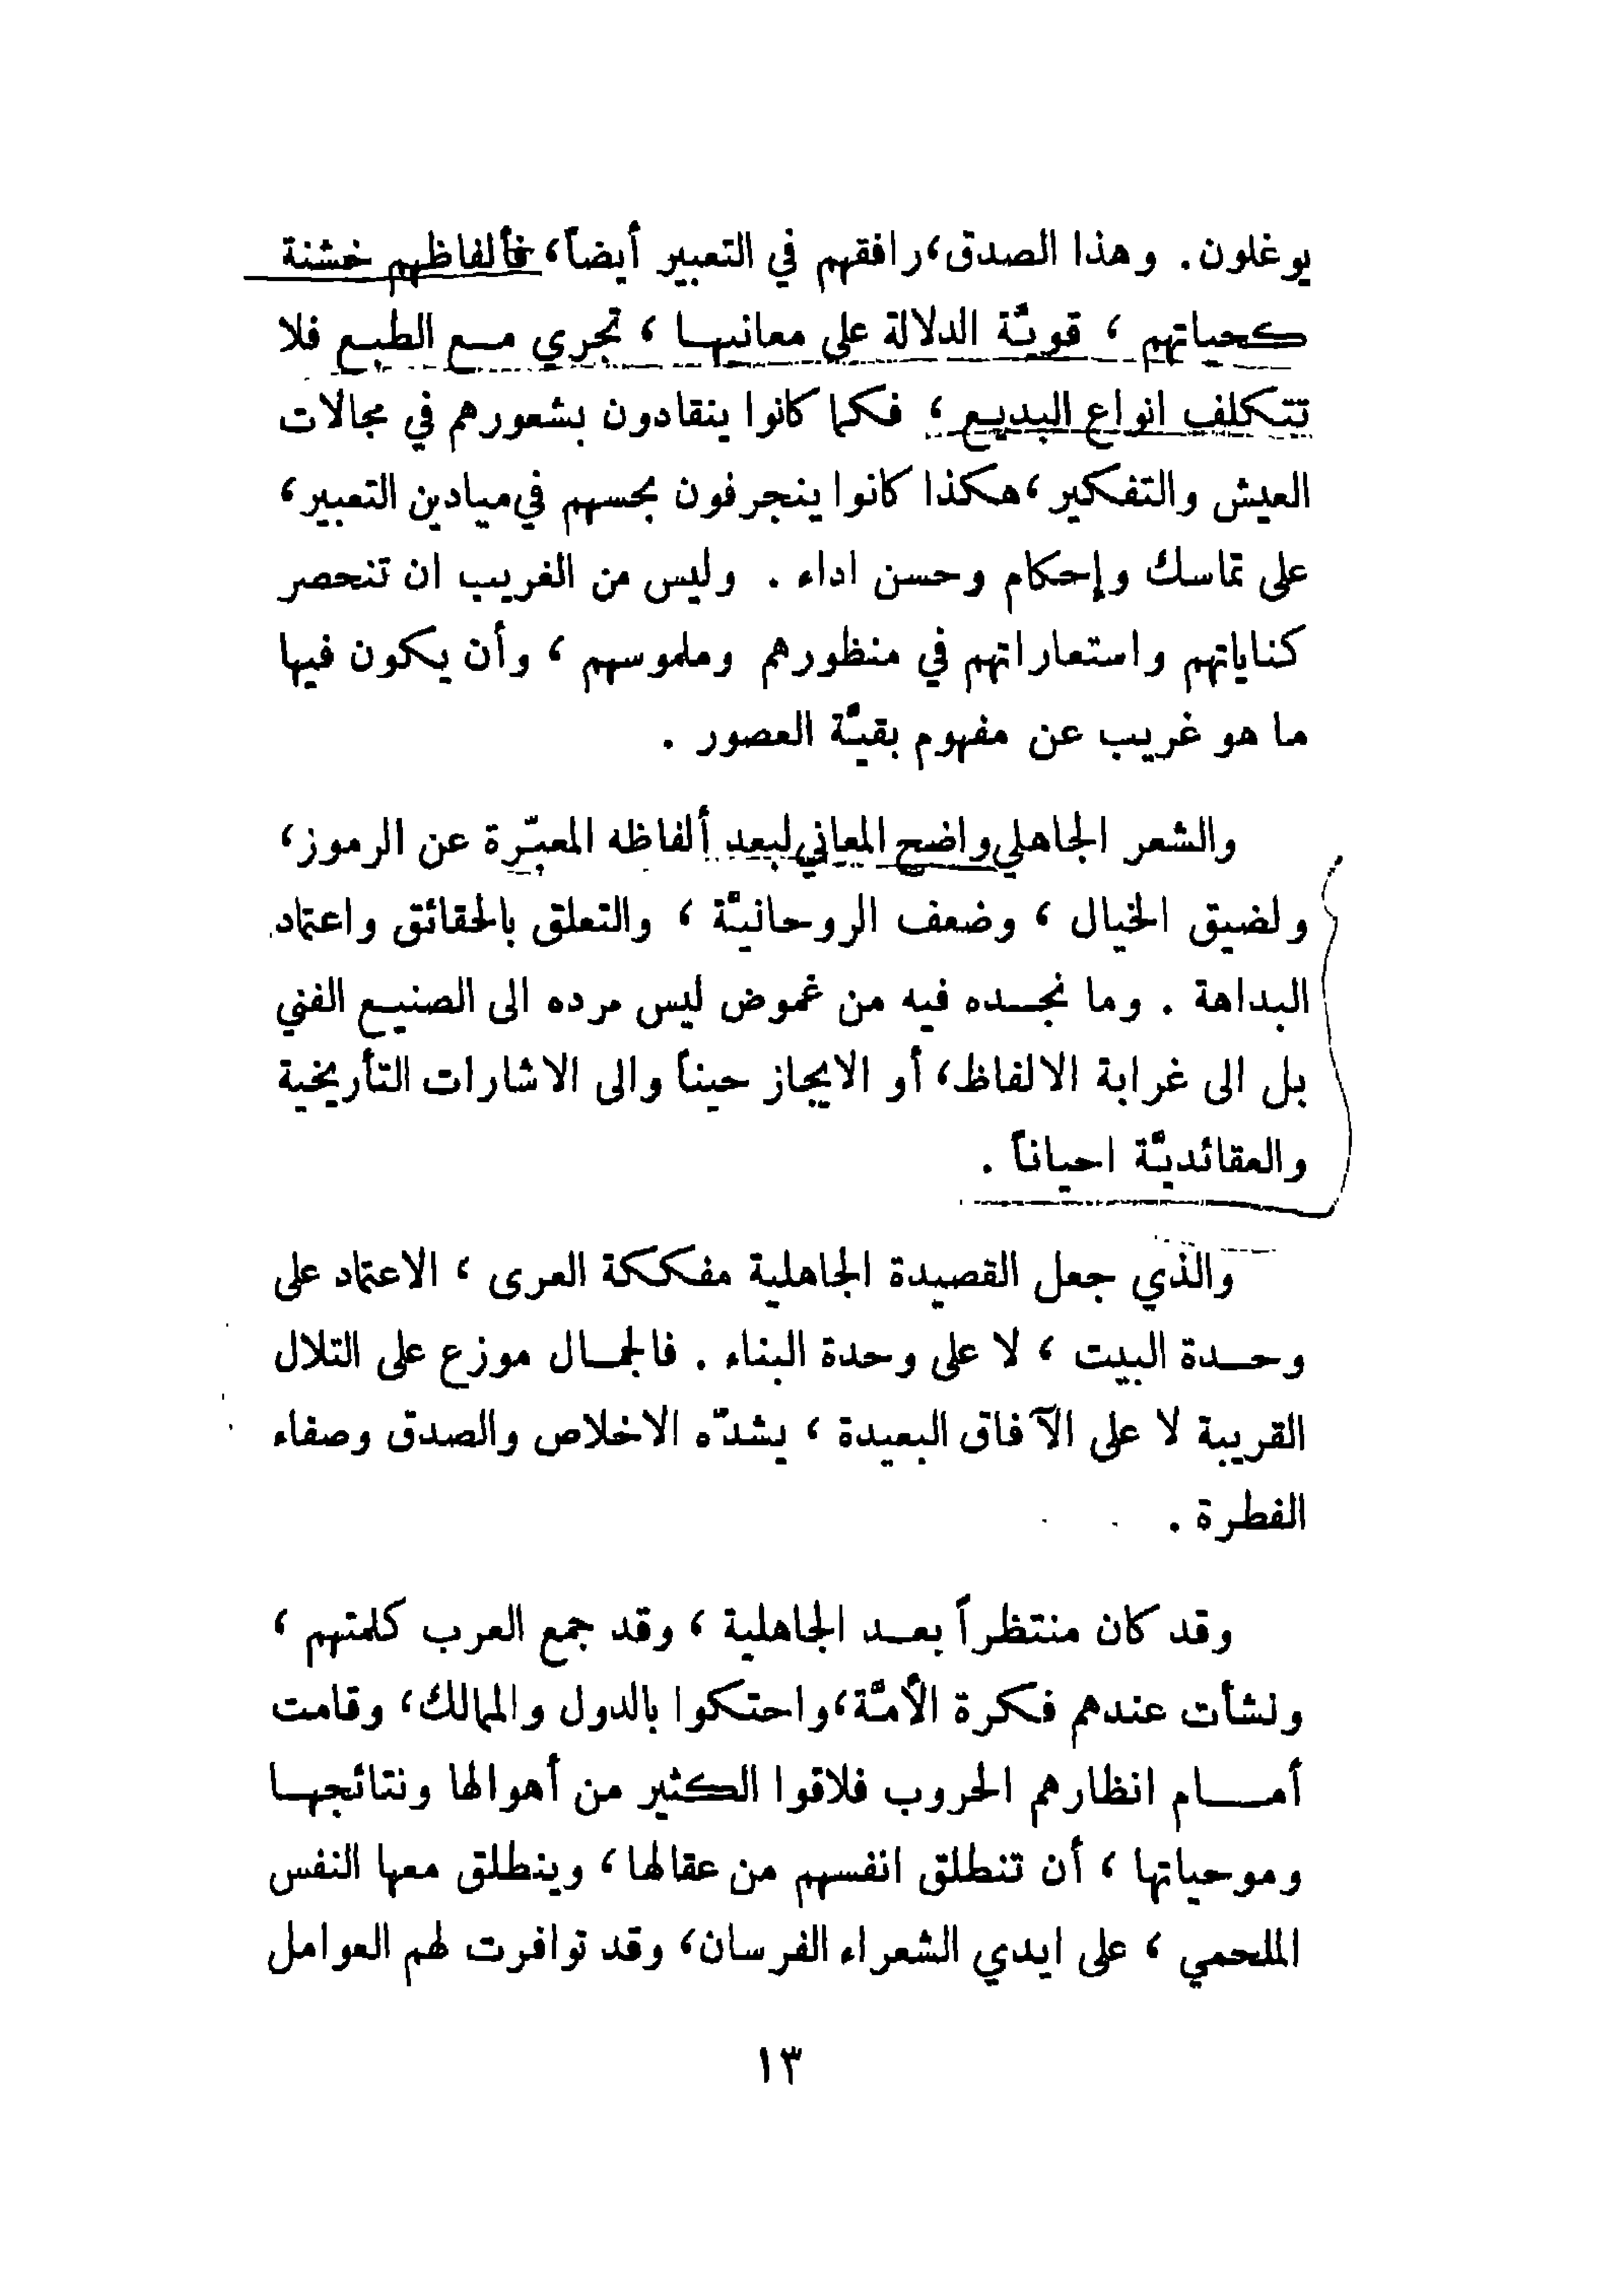 يوغلون. وهذا الصدق، رافقهم في التعبير أيضاً، فألفاظهم خشنة
كحياتهم ، قويّة الدلالة على معانيها ، تجري مع الطبع فلا
تتكلف انواع البديع ، فكما كانوا ينقادون بشعورهم في مجالات
العيش والتفكير، هكذا كانوا ينجرفون بحسهم في ميادين التعبير،
على تماسك وإحكام وحسن اداء . وليس من الغريب ان تنحصر
كناياتهم واستعاراتهم في منظورهم وملموسهم ، وأن يكون فيها
ما هو غريب عن مفهوم بقيّة العصور .
والشعر الجاهلي واضح المعاني لبعد ألفاظه المعبّرة عن الرموز،
ولضيق الخيال ، وضعف الروحانيّة ، والتعلق بالحقائق واعتماد
البداهة . وما نجده فيه من غموض ليس مرده الى الصنيع الفني
بل الى غرابة الالفاظ، أو الايجاز حيناً والى الاشارات التأريخية
والعقائديّة احياناً .
والذي جعل القصيدة الجاهلية مفككة العرى ، الاعتماد على
وحدة البيت ، لا على وحدة البناء . فالجمال موزع على التلال
القريبة لا على الآفاق البعيدة ، يشدّه الاخلاص والصدق وصفاء
الفطرة .
وقد كان منتظراً بعد الجاهلية ، وقد جمع العرب كلمتهم ،
ونشأت عندهم فكرة الأمّة، واحتكوا بالدول والممالك، وقامت
أمام انظارهم الحروب فلاقوا الكثير من أهوالها ونتائجها
وموحياتها ، أن تنطلق انفسهم من عقالها ، وينطلق معها النفس
الملحمي ، على ايدي الشعراء الفرسان، وقد توافرت لهم العوامل
١٣